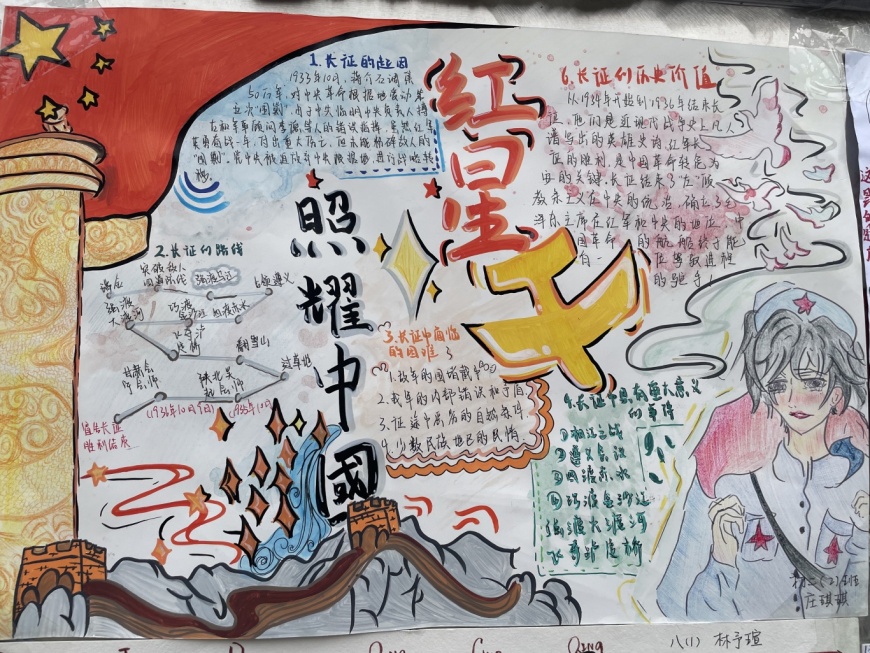 红星
照耀中國
1.长征的起因
1933年10月,蒋介石调集
50万军,对中央革命根据地发动第
五次"围剿",由于中央临时中央负责人博
古和军事顾问李德等人的错误指挥,虽然红军
英勇奋战一年,付出重大伤亡,但未能粉碎敌人的
2.长征的路线
瑞金
突破敌人
四道防线
强渡乌江
占领遵义
四渡赤水
巧渡
金沙江
强渡
大渡河
飞夺泸
定桥
翻雪山
过草地
陕北吴
起会师
(1935年10月)
甘肃会
宁会师
(1936年10月)
宣告长征
胜利结束...
3.长征中面临
的困难
1.敌军的围堵截
2.我军的内部错误和矛盾
3.征途中恶劣的自然条件
4.少数民族地区的民情
4.长征中具有重大意义
的事情
①湘江之战
②遵义会议
③四渡赤水
④巧渡金沙江
强渡大渡河
飞夺泸定桥
6.长征的历史价值
从1934年开始到1936年结束长
征,他们是近现代战争史上凡人
谱写出的英雄史诗,红军长
征的胜利,是中国革命转危为
安的关键.长征结束了"左"倾
教条主义在中央的统治,确立了毛
泽东主席在红军和中央的地位,中
国革命的航船终于能
的驶手!
初二(2)班
庄琪琪
八(1) 林予瑄
QING